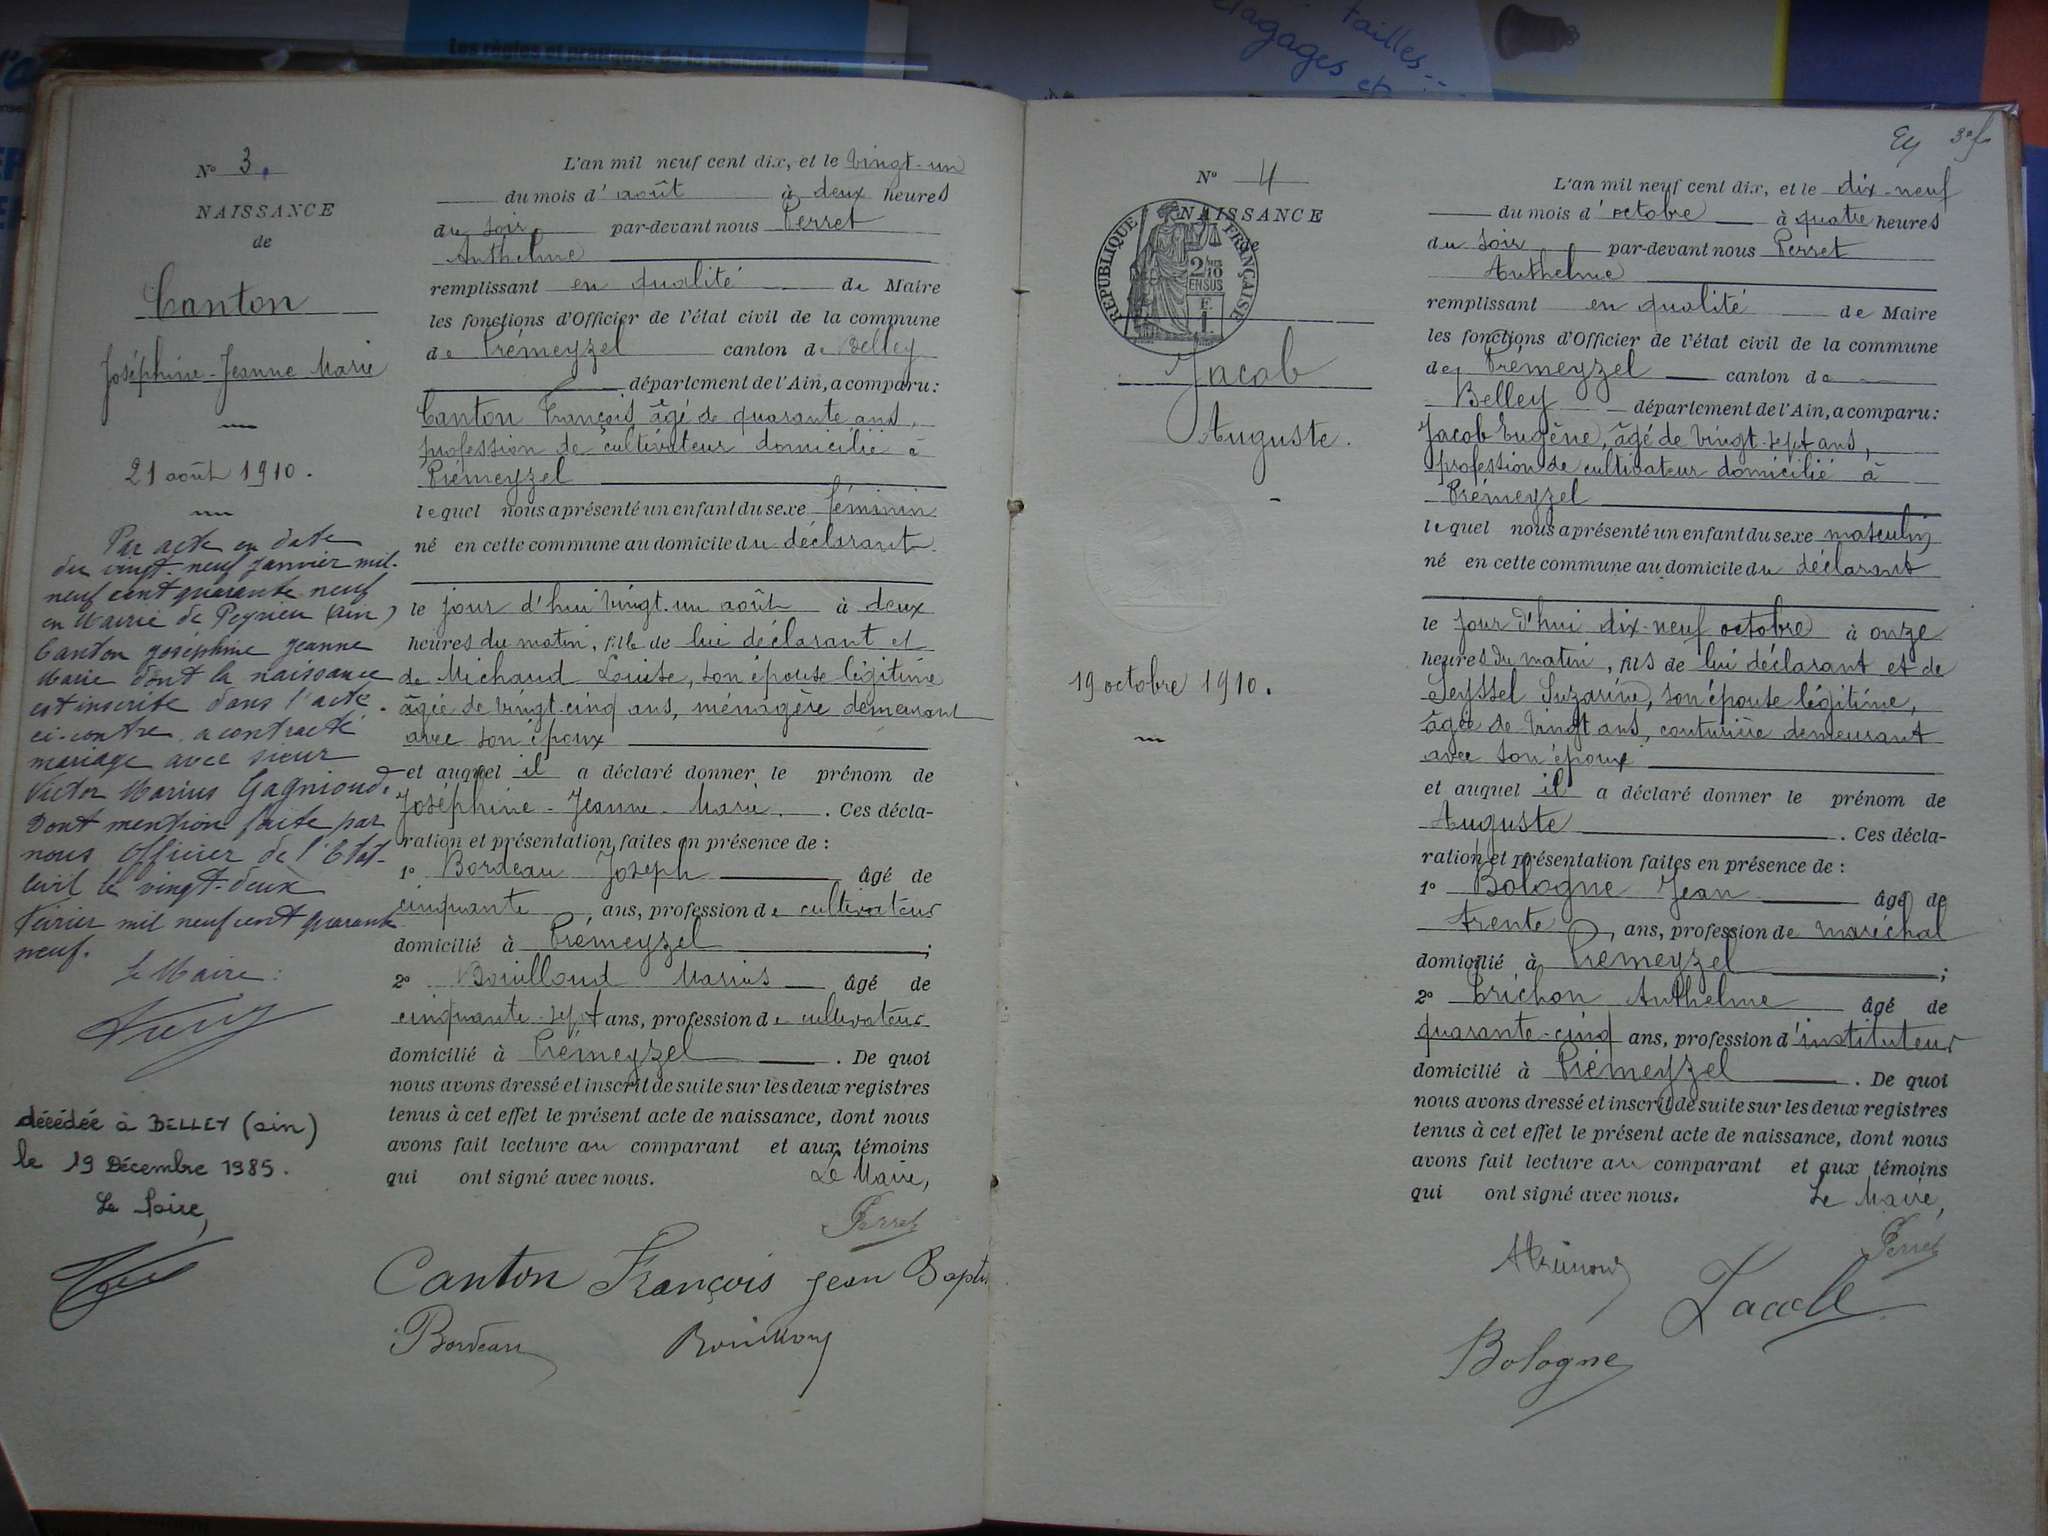 Les règles et pratiques de la
tailles...
élagages et
N° 3.
NAISSANCE
de
Canton
Joséphine-Jeanne Marie
21 août 1910.
Par acte en date
du vingt-neuf janvier mil-
neuf cent quarante neuf
en Mairie de Peyrieu (Ain)
Canton Joséphine Jeanne
Marie dont la naissance
est inscrite dans l'acte
ci-contre a contracté
mariage avec sieur
Victor Marius Gagnioud.
Dont mention faite par
nous Officier de l'Etat-
Civil le vingt-deux
Février mil neuf cent quarante
neuf.
Le Maire:
décédée à BELLEY (ain)
le 19 Décembre 1985.
Le Maire,
L'an mil neuf cent dix, et le vingt-un
du mois d'août à deux heures
du soir par-devant nous Perret
Anthelme
remplissant en qualité de Maire
les fonctions d'Officier de l'état civil de la commune
de Prémeyzel canton de Belley
département de l'Ain, a comparu:
Canton François âgé de quarante ans,
profession de cultivateur domicilié à
Prémeyzel
lequel nous a présenté un enfant du sexe féminin
né en cette commune au domicile du déclarant
le jour d'hui vingt-un août à deux
heures du matin, fille de lui déclarant et
de Michaud Louise, son épouse légitime
âgée de vingt-cinq ans, ménagère demeurant
avec son époux
et auquel il a déclaré donner le prénom de
Joséphine-Jeanne-Marie. Ces décla-
ration et présentation faites en présence de :
1° Bordeau Joseph âgé de
cinquante ans, profession de cultivateur
domicilié à Prémeyzel ;
2° Bouilloud Marius âgé de
cinquante-sept ans, profession de cultivateur
domicilié à Prémeyzel . De quoi
nous avons dressé et inscrit de suite sur les deux registres
tenus à cet effet le présent acte de naissance, dont nous
avons fait lecture au comparant et aux témoins
qui ont signé avec nous. Le Maire,
Perret
Canton François Jean Bapti
Bordeau Bouilloud
3e f.
N° 4
NAISSANCE
de
RÉPUBLIQUE FRANÇAISE
2/10
EN SUS
Jacob
Auguste.
19 octobre 1910.
L'an mil neuf cent dix, et le dix-neuf
du mois d'octobre à quatre heures
du soir par-devant nous Perret
Anthelme
remplissant en qualité de Maire
les fonctions d'Officier de l'état civil de la commune
de Prémeyzel canton de
Belley département de l'Ain, a comparu:
Jacob Eugène, âgé de vingt-sept ans,
profession de cultivateur domicilié à
Prémeyzel
lequel nous a présenté un enfant du sexe masculin
né en cette commune au domicile du déclarant
le jour d'hui dix-neuf octobre à onze
heures du matin, fils de lui déclarant et de
Seyssel Suzanne, son épouse légitime,
âgée de vingt ans, couturière demeurant
avec son époux
et auquel il a déclaré donner le prénom de
Auguste . Ces décla-
ration et présentation faites en présence de :
1° Bologne Jean âgé de
trente, ans, profession de maréchal
domicilié à Prémeyzel ;
2° Trichon Anthelme âgé de
quarante-cinq ans, profession d'instituteur
domicilié à Prémeyzel . De quoi
nous avons dressé et inscrit de suite sur les deux registres
tenus à cet effet le présent acte de naissance, dont nous
avons fait lecture au comparant et aux témoins
qui ont signé avec nous. Le Maire,
Perret
Jacob
Bologne